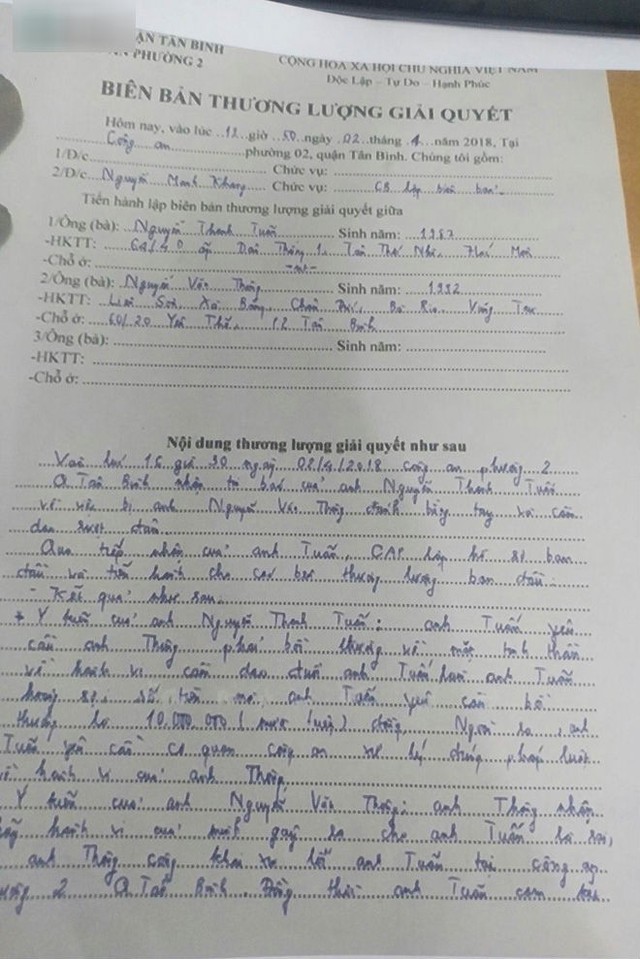 ẬN TÂN BÌNH
PHƯỜNG 2
CỘNG HÒA XÃ HỘI CHỦ NGHĨA VIỆT NAM
Độc Lập – Tự Do – Hạnh Phúc
BIÊN BẢN THƯƠNG LƯỢNG GIẢI QUYẾT
Hôm nay, vào lúc 17 giờ 50 ngày 02 tháng 4 năm 2018, Tại
Công an phường 02, quận Tân Bình. Chúng tôi gồm:
1/Đ/c Chức vụ:
2/Đ/c Nguyễn Mạnh Khang Chức vụ: CB lập biên bản
Tiến hành lập biên bản thương lượng giải quyết giữa
1/Ông (bà): Nguyễn Thanh Tuấn Sinh năm: 1987
-HKTT: ấp Tân Thới Nhì, Hóc Môn
-Chỗ ở: -nt-
2/Ông (bà): Nguyễn Văn Thông Sinh năm: 1992
-HKTT: Xà Bang, Châu Đức, Bà Rịa Vũng Tàu
-Chỗ ở: 60/20 Yên Thế, Tân Bình
3/Ông (bà): Sinh năm:
-HKTT:
-Chỗ ở:
Nội dung thương lượng giải quyết như sau
Vào lúc 16 giờ 30 ngày 02/4/2018 công an phường 2
Q Tân Bình nhận tin báo của anh Nguyễn Thanh Tuấn
về việc bị anh Nguyễn Văn Thông đánh bằng tay và cầm
dao rượt đuổi
Qua tiếp nhận của anh Tuấn, CAP lập hồ sơ ban
đầu và tiến hành cho các bên thương lượng ban đầu
- Kết quả như sau
* Ý kiến của anh Nguyễn Thanh Tuấn: anh Tuấn yêu
cầu anh Thông phải bồi thường về mặt tinh thần
về hành vi cầm dao đuổi anh Tuấn làm anh Tuấn
hoảng sợ, số tiền mà anh Tuấn yêu cầu bồi
thường là 10.000.000 (mười triệu) đồng. Ngoài ra, anh
Tuấn yêu cầu cơ quan công an xử lý đúng pháp luật
về hành vi của anh Thông
Ý kiến của anh Nguyễn Văn Thông: anh Thông nhận
thấy hành vi của mình gây ra cho anh Tuấn là sai,
anh Thông công khai xin lỗi anh Tuấn tại công an
phường 2 Q Tân Bình. Đồng thời anh Tuấn cam kết